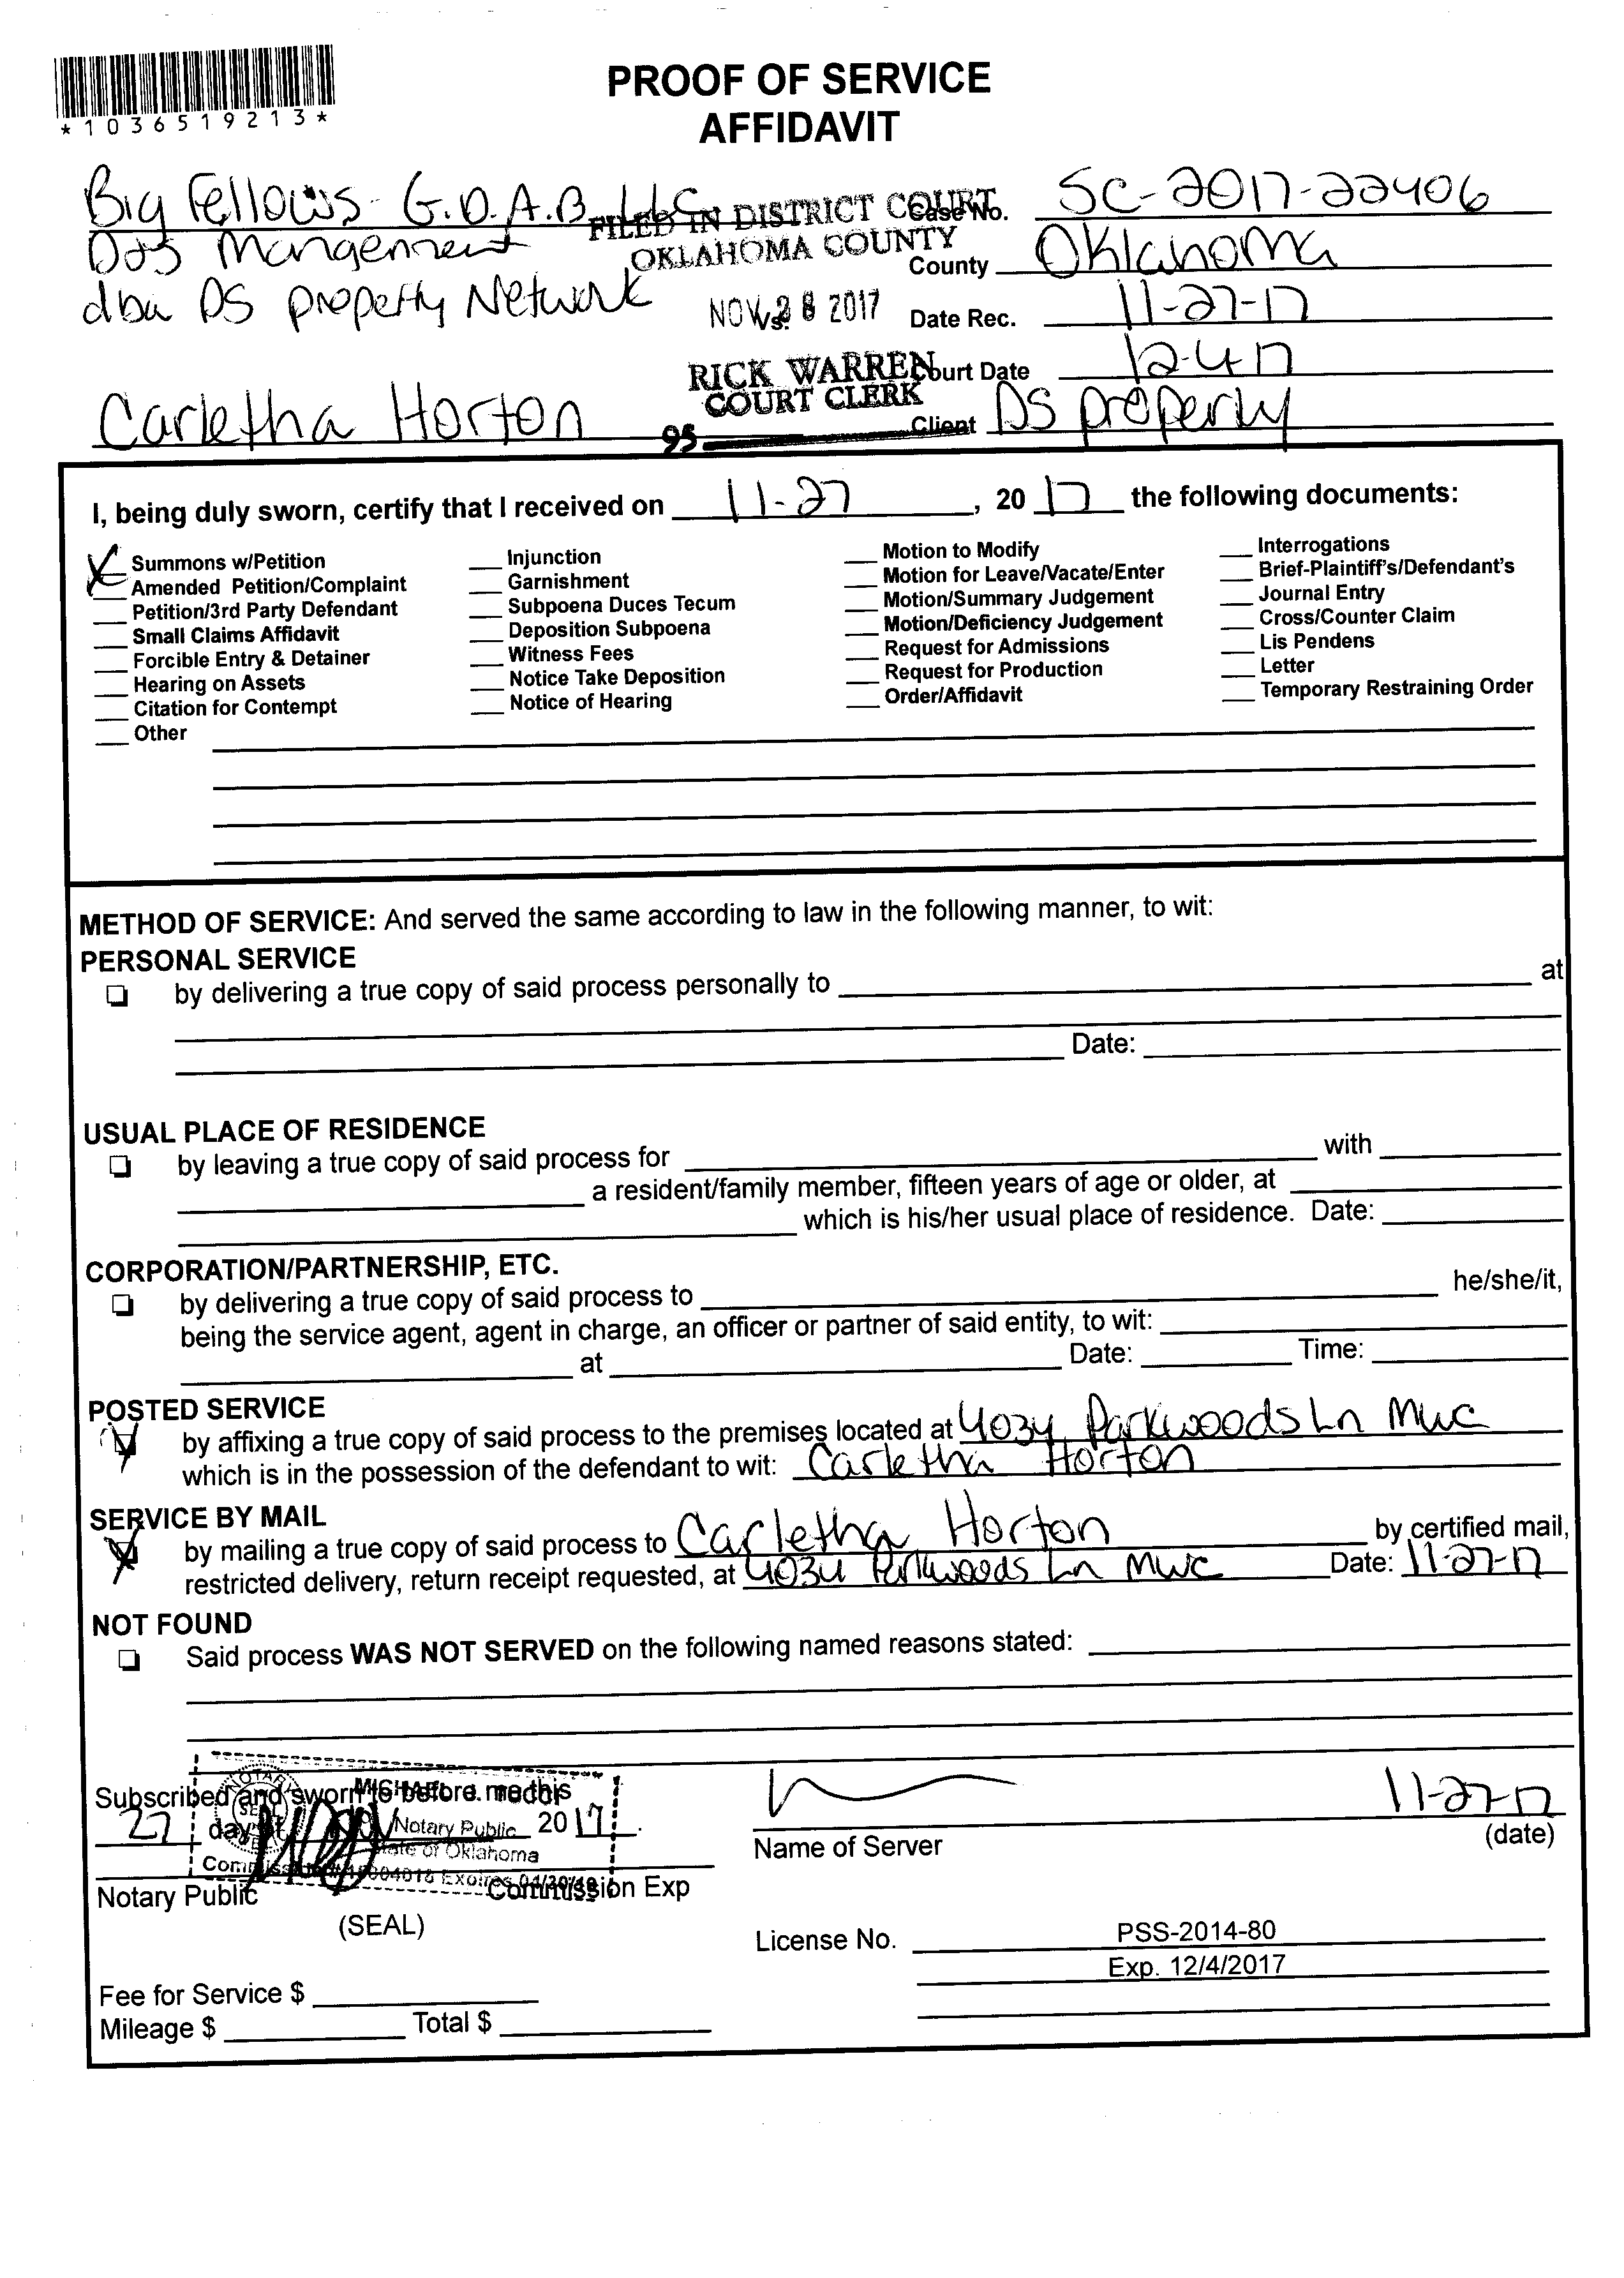 *1036519213*
PROOF OF SERVICE
AFFIDAVIT
Big Fellows G.D.A.B. LLC
D&S Mangement
dba DS property Network
FILED IN DISTRICT COURT
OKLAHOMA COUNTY
NOV 28 2017
RICK WARREN
COURT CLERK
95
Case No. SC-2017-22406
County Oklahoma
Date Rec. 11-27-17
vs.
Court Date 12-4-17
Carletha Horton
Client DS property
I, being duly sworn, certify that I received on 11-27, 2017 the following documents:
Summons w/Petition
Amended Petition/Complaint
Petition/3rd Party Defendant
Small Claims Affidavit
Forcible Entry & Detainer
Hearing on Assets
Citation for Contempt
Other
Injunction
Garnishment
Subpoena Duces Tecum
Deposition Subpoena
Witness Fees
Notice Take Deposition
Notice of Hearing
Motion to Modify
Motion for Leave/Vacate/Enter
Motion/Summary Judgement
Motion/Deficiency Judgement
Request for Admissions
Request for Production
Order/Affidavit
Interrogations
Brief-Plaintiff's/Defendant's
Journal Entry
Cross/Counter Claim
Lis Pendens
Letter
Temporary Restraining Order
METHOD OF SERVICE: And served the same according to law in the following manner, to wit:
PERSONAL SERVICE
by delivering a true copy of said process personally to at
Date:
USUAL PLACE OF RESIDENCE
by leaving a true copy of said process for with
a resident/family member, fifteen years of age or older, at
which is his/her usual place of residence. Date:
CORPORATION/PARTNERSHIP, ETC.
by delivering a true copy of said process to he/she/it,
being the service agent, agent in charge, an officer or partner of said entity, to wit:
at Date: Time:
POSTED SERVICE
by affixing a true copy of said process to the premises located at 4034 Parkwoods Ln MWC
which is in the possession of the defendant to wit: Carletha Horton
SERVICE BY MAIL
by mailing a true copy of said process to Carletha Horton by certified mail,
restricted delivery, return receipt requested, at 4034 Parkwoods Ln MWC Date: 11-27-17
NOT FOUND
Said process WAS NOT SERVED on the following named reasons stated:
Subscribed and sworn to before me this
27 day of Nov 2017.
Notary Public
State of Oklahoma
Notary Public Commission Exp
(SEAL)
11-27-17
Name of Server (date)
License No. PSS-2014-80
Exp. 12/4/2017
Fee for Service $
Mileage $ Total $